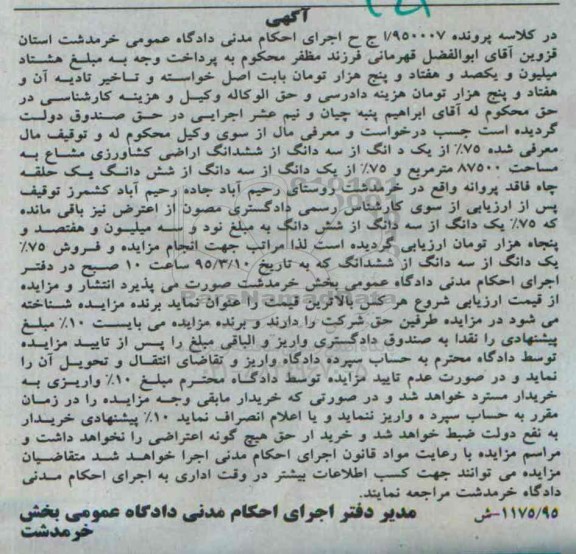 آگهی
در کلاسه پرونده ۱/۹۵۰۰۰۷ ج ح اجرای احکام مدنی دادگاه عمومی خرمدشت استان
قزوین آقای ابوالفضل قهرمانی فرزند مظفر محکوم به پرداخت وجه به مبلغ هشتاد
میلیون و یکصد و هفتاد و پنج هزار تومان بابت اصل خواسته و تاخیر تادیه آن و
هفتاد و پنج هزار تومان هزینه دادرسی و حق الوکاله وکیل و هزینه کارشناسی در
حق محکوم له آقای ابراهیم پنبه چیان و نیم عشر اجرایی در حق صندوق دولت
گردیده است حسب درخواست و معرفی مال از سوی وکیل محکوم له و توقیف مال
معرفی شده ۷۵٪ از یک د انگ از سه دانگ از ششدانگ اراضی کشاورزی مشاع به
مساحت ۸۷۵۰۰ مترمربع و ۷۵٪ از یک دانگ از سه دانگ از شش دانگ یک حلقه
چاه فاقد پروانه واقع در خرمدشت روستای رحیم آباد جاده رحیم آباد کشمرز توقیف
پس از ارزیابی از سوی کارشناس رسمی دادگستری مصون از اعترض نیز باقی مانده
که ۷۵٪ یک دانگ از سه دانگ از شش دانگ به مبلغ نود و سه میلیون و هفتصد و
پنجاه هزار تومان ارزیابی گردیده است لذا مراتب جهت انجام مزایده و فروش ۷۵٪
یک دانگ از سه دانگ از ششدانگ که به تاریخ ۹۵/۳/۱۰ ساعت ۱۰ صبح در دفتر
اجرای احکام مدنی دادگاه عمومی بخش خرمدشت صورت می پذیرد انتشار و مزایده
از قیمت ارزیابی شروع هر کس بالاترین قیمت را عنوان نماید برنده مزایده شناخته
می شود در مزایده طرفین حق شرکت را دارند و برنده مزایده می بایست ۱۰٪ مبلغ
پیشنهادی را نقدا به صندوق دادگستری واریز و الباقی مبلغ را پس از تایید مزایده
توسط دادگاه محترم به حساب سپرده دادگاه واریز و تقاضای انتقال و تحویل آن را
نماید و در صورت عدم تایید مزایده توسط دادگاه محترم مبلغ ۱۰٪ واریزی به
خریدار مسترد خواهد شد و در صورتی که خریدار مابقی وجه مزایده را در زمان
مقرر به حساب سپرد ه واریز ننماید و یا اعلام انصراف نماید ۱۰٪ پیشنهادی خریدار
به نفع دولت ضبط خواهد شد و خرید ار حق هیچ گونه اعتراضی را نخواهد داشت و
مراسم مزایده با رعایت مواد قانون اجرای احکام مدنی اجرا خواهد شد متقاضیان
مزایده می توانند جهت کسب اطلاعات بیشتر در وقت اداری به اجرای احکام مدنی
دادگاه خرمدشت مراجعه نمایند.
۱۱۷۵/۹۵-ش مدیر دفتر اجرای احکام مدنی دادگاه عمومی بخش
خرمدشت